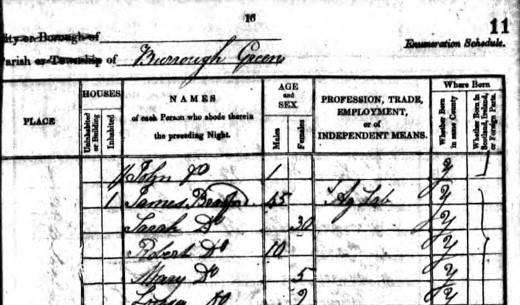 16
11
City or Borough of
Enumeration Schedule.
Parish or Township of Burrough Green
PLACE
HOUSES
Uninhabited or Building
Inhabited
NAMES of each Person who abode therein the preceding Night.
AGE and SEX
Males
Females
PROFESSION, TRADE, EMPLOYMENT, or of INDEPENDENT MEANS.
Where Born
Whether Born in same County
Whether Born in Scotland, Ireland, or Foreign Parts.
John Do 1 Y
1 James 45 Ag Lab Y
Sarah Do 30 Y
Robert Do 10 Y
Mary Do 5 Y
Do 2 Y